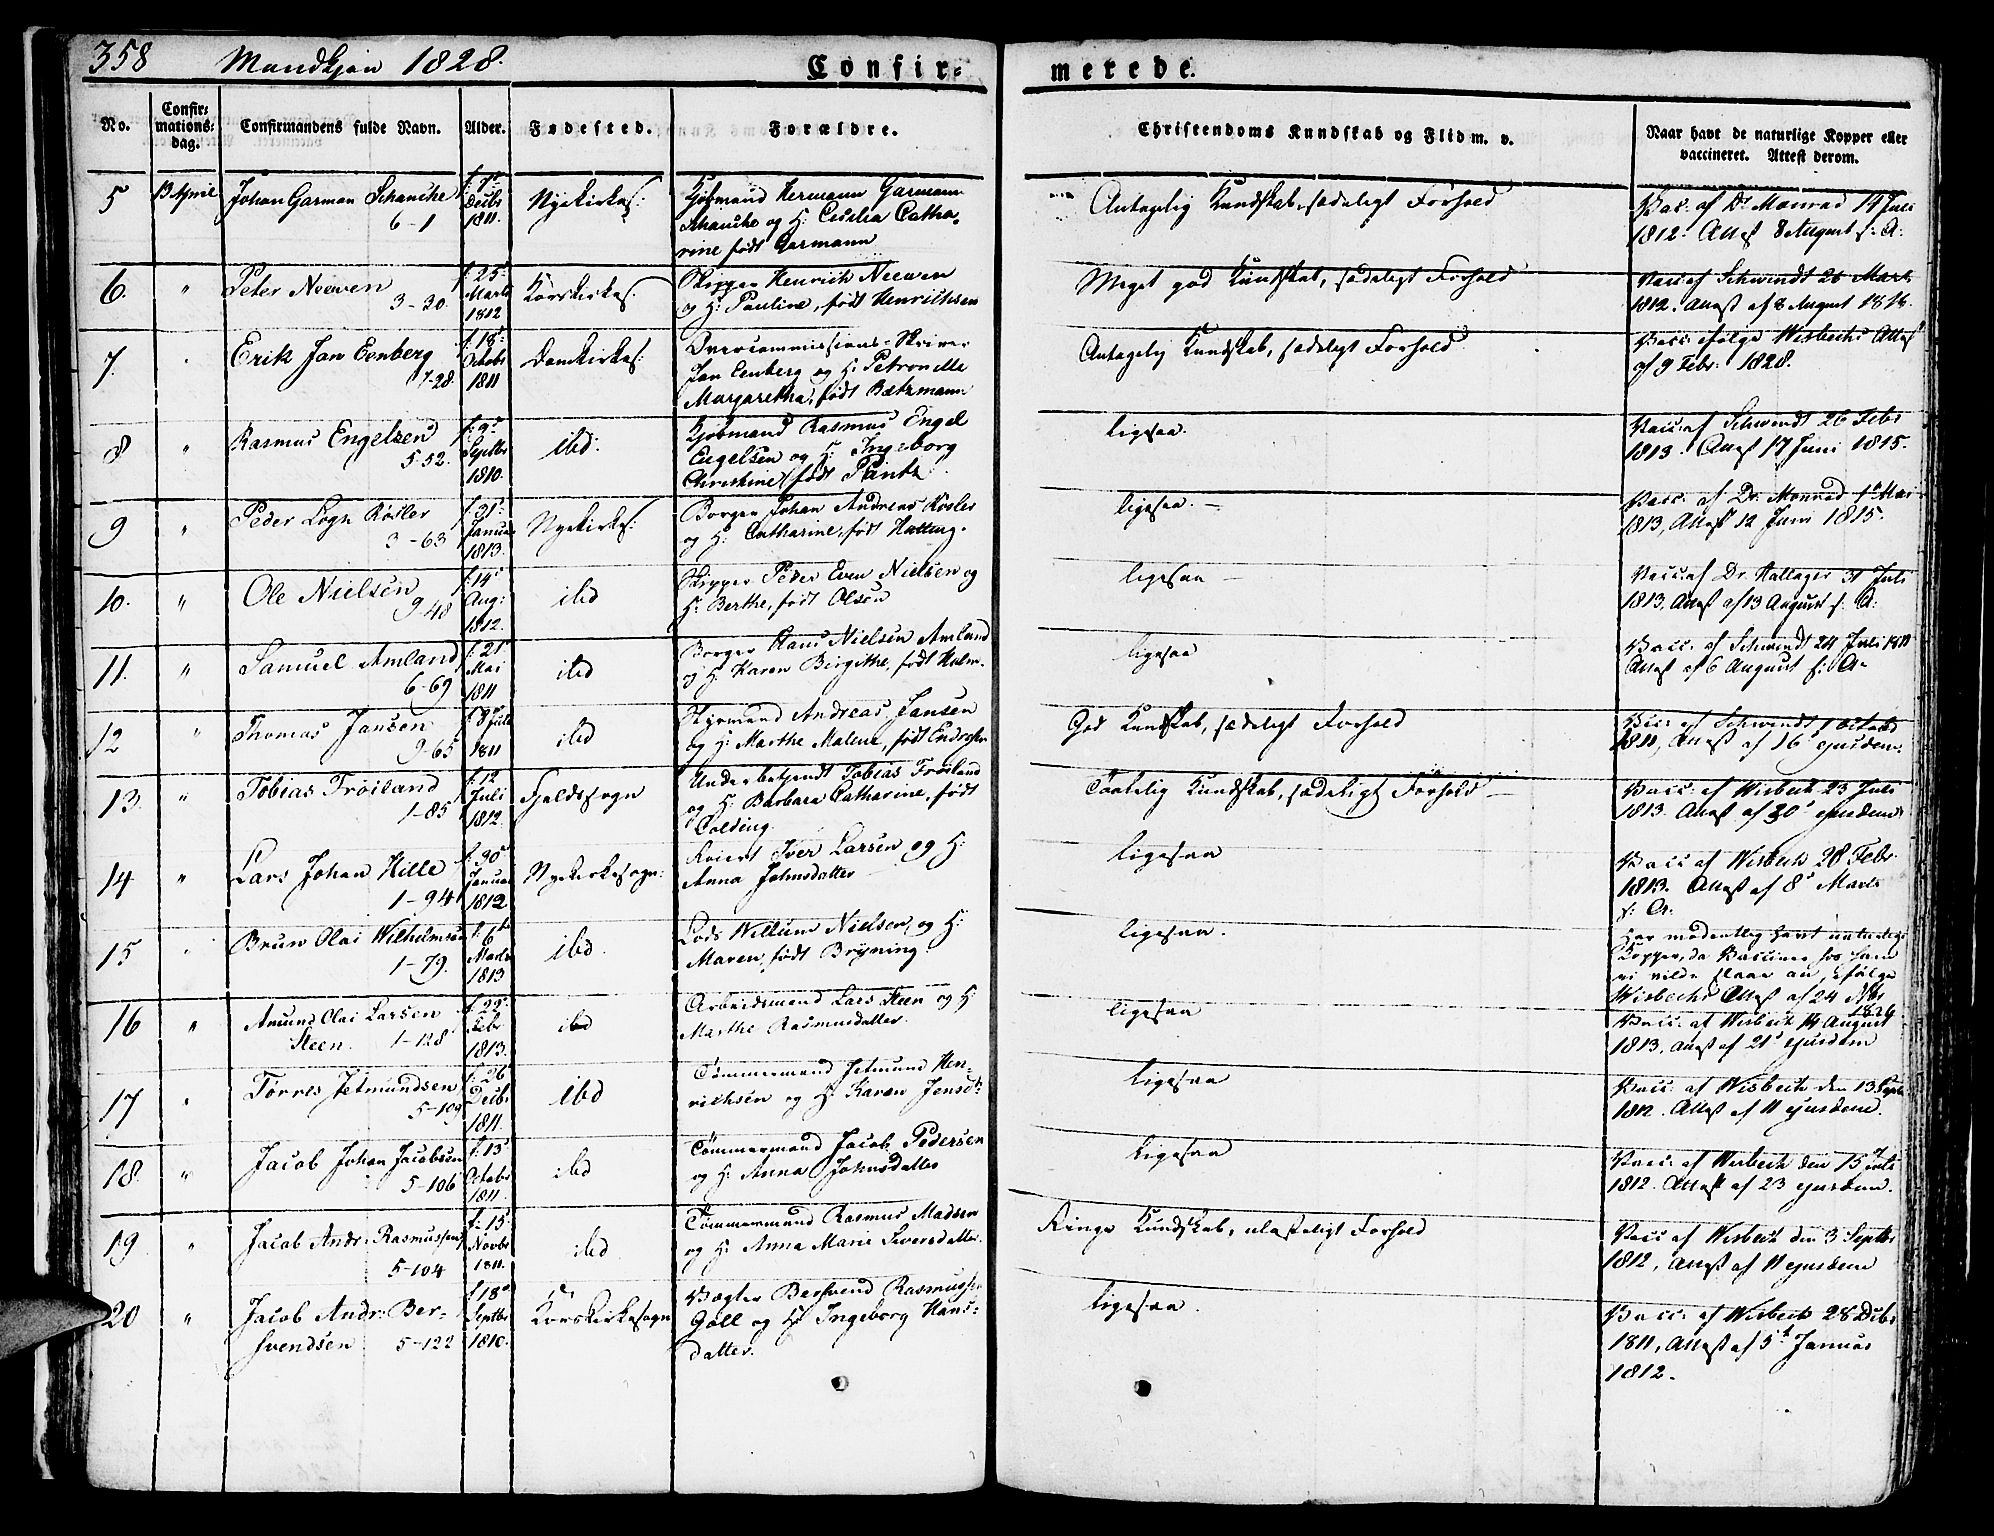 358 Mandkjøn 1828.
Confir-
merede.
No.
Confir-
mations-
dag.
Confirmandens fulde Navn.
Alder.
Fødested.
Forældre.
Christendoms Kundskab og Flid m. v.
Naar havt de naturlige Kopper eller
vaccineret. Attest derom.
5 13 April Johan Garman Schanche
6-1
f. 7de
Decbr
1811.
Nyekirkes:
Kjøbmand Hermann Garmann
Schanche og H: Cecilia Catha-
rine født Garmann
Antagelig Kundskab, sædeligt Forhold
Vacc: af Dr Monrad 14 Juli
1812. Attest 8 August s: A:
6. " Peter Neewen
3-30
f. 25
Marts
1812
Korskirkes.
Skipper Henrich Neewen
og H: Pauline, født Henrichsen
Meget god Kundskab, sædeligt Forhold
Vacc: af Schwindt 26 Marts
1812. Attest af 8 August 1818.
7. " Erik Jan Eenberg
7-28.
f. 18
Octobr
1811
Domkirkes:
Overcommissions-Skriver
Jan Eenberg og H: Petronelle
Margaretha, født Bætzmann
Antagelig Kundskab, sædeligt Forhold
Vacc: ifølge Wisbechs Attest
af 9 Febr: 1828.
8 " Rasmus Engelsen
5-52.
f: 9
Septbr
1810.
ibd:
Kjøbmand Rasmus Engel
Engelsen og H: Ingeborg
Christine, født Pantz
ligesaa.
Vacc: af Schwindt 26 Febr
1813. Attest 17 Juni 1815.
9 " Peder Logn Røsler
3-63
f. 31
Januar
1813.
Nyekirkes:
Borger Johan Andreas Røsler
og H: Catharine, født Hatting.
ligesaa.
Vacc: af Dr. Monrad 1 Mai
1813, Attest 12 Juni 1815.
10. " Ole Nielsen
9-48
f: 14
Aug:
1812.
ibd
Skipper Peder Even Nielsen og
H: Berthe, født Olsen
ligesaa
Vacc: af Dr. Hallager 31 Juli
1813, Attest af 13 August s: A:
11. " Samuel Amland
6-69
f: 21
Mai
1811
ibd
Borger Claus Nielsen Amland
og H: Karen Birgithe, født Holm.
ligesaa
Vacc: af Schwindt 24 Juli 1811
Attest af 6 August s: A.
12 " Thomas Jansen
9-65
f 8 Juli
1811
ibd
Styrmand Andreas Jansen
og H: Marthe Malene, født
God Kundskab, sædeligt Forhold
Vacc: af Schwindt 1 Octobr
1811, Attest af 16 ejusdem.
13. " Tobias Frøiland
1-85
f: 12
Juli
1812.
Fjeldssogn
Underbetjendt Tobias Frøiland
og H: Barbara Catharine, født
Colding.
Taalelig Kundskab, sædeligt Forhold
Vacc: af Wisbech 23 Juli
1813. Attest af 30 ejusdem
14 " Lars Johan Hille
1-94
f. 30
Januar
1812
Nyekirkesogn:
Iver Larsen og H:
Anna Johnsdatter
ligesaa
Vacc: af Wisbech 28 Febr.
1813. Attest af 8 Marts
s: A:
15 " Brun Olai Wilhelmsen
1-79.
f: 6
Marts
1813
ibd.
Lods Willum Nielsen, og H:
Maren, født Bryning
ligesaa.
Har modentlig havt naturlige
Kopper, da Vaccinen hos ham
ei vilde slaae an, ifølge
Wisbechs Attest af 24
1826
16 " Amund Olai Larsen
Steen. 1-128
f. 22
Febr
1813.
ibd
Arbeidsmand Lars Steen og H:
Marthe Rasmusdatter.
ligesaa
Vacc: af Wisbech 14 August
1813, Attest af 21 ejusdem
17 " Tørres Jetmundsen
5-109
f: 26
Decbr
1811.
ibd
Tømmermand Jetmund Hen-
richsen og H: Karen Jensdtr
ligesaa
Vacc: af Wisbech den 13 Septbr
1812. Attest af 11 ejusdem.
18. " Jacob Johan Jacobsen
5-106
f: 13
Octobr
1811.
ibd
Tømmermand Jacob Pedersen
og H: Anna Johnsdatter
ligesaa
Vacc: af Wisbech den 15 Juli
1812. Attest af 23 ejusdem.
19 " Jacob Andr: Rasmussen
5-104
f: 15
Novbr
1811.
ibd.
Tømmermand Rasmus Madsen
og H: Anna Marie Siversdatter.
Ringe Kundskab, ulasteligt Forhold
Vacc: af Wisbech den 3 Septbr
1812, Attest af 11 ejusdem
20 " Jacob Andr: Ber-
svendsen 5-122
f 18
Septbr
1810.
Korskirkesogn
Vægter Bersvend Rasmussen
Gåll og H: Ingeborg Hans-
datter.
ligesaa.
Vacc: af Wisbech 28 Decbr
1811, Attest af 5t Januar
1812.